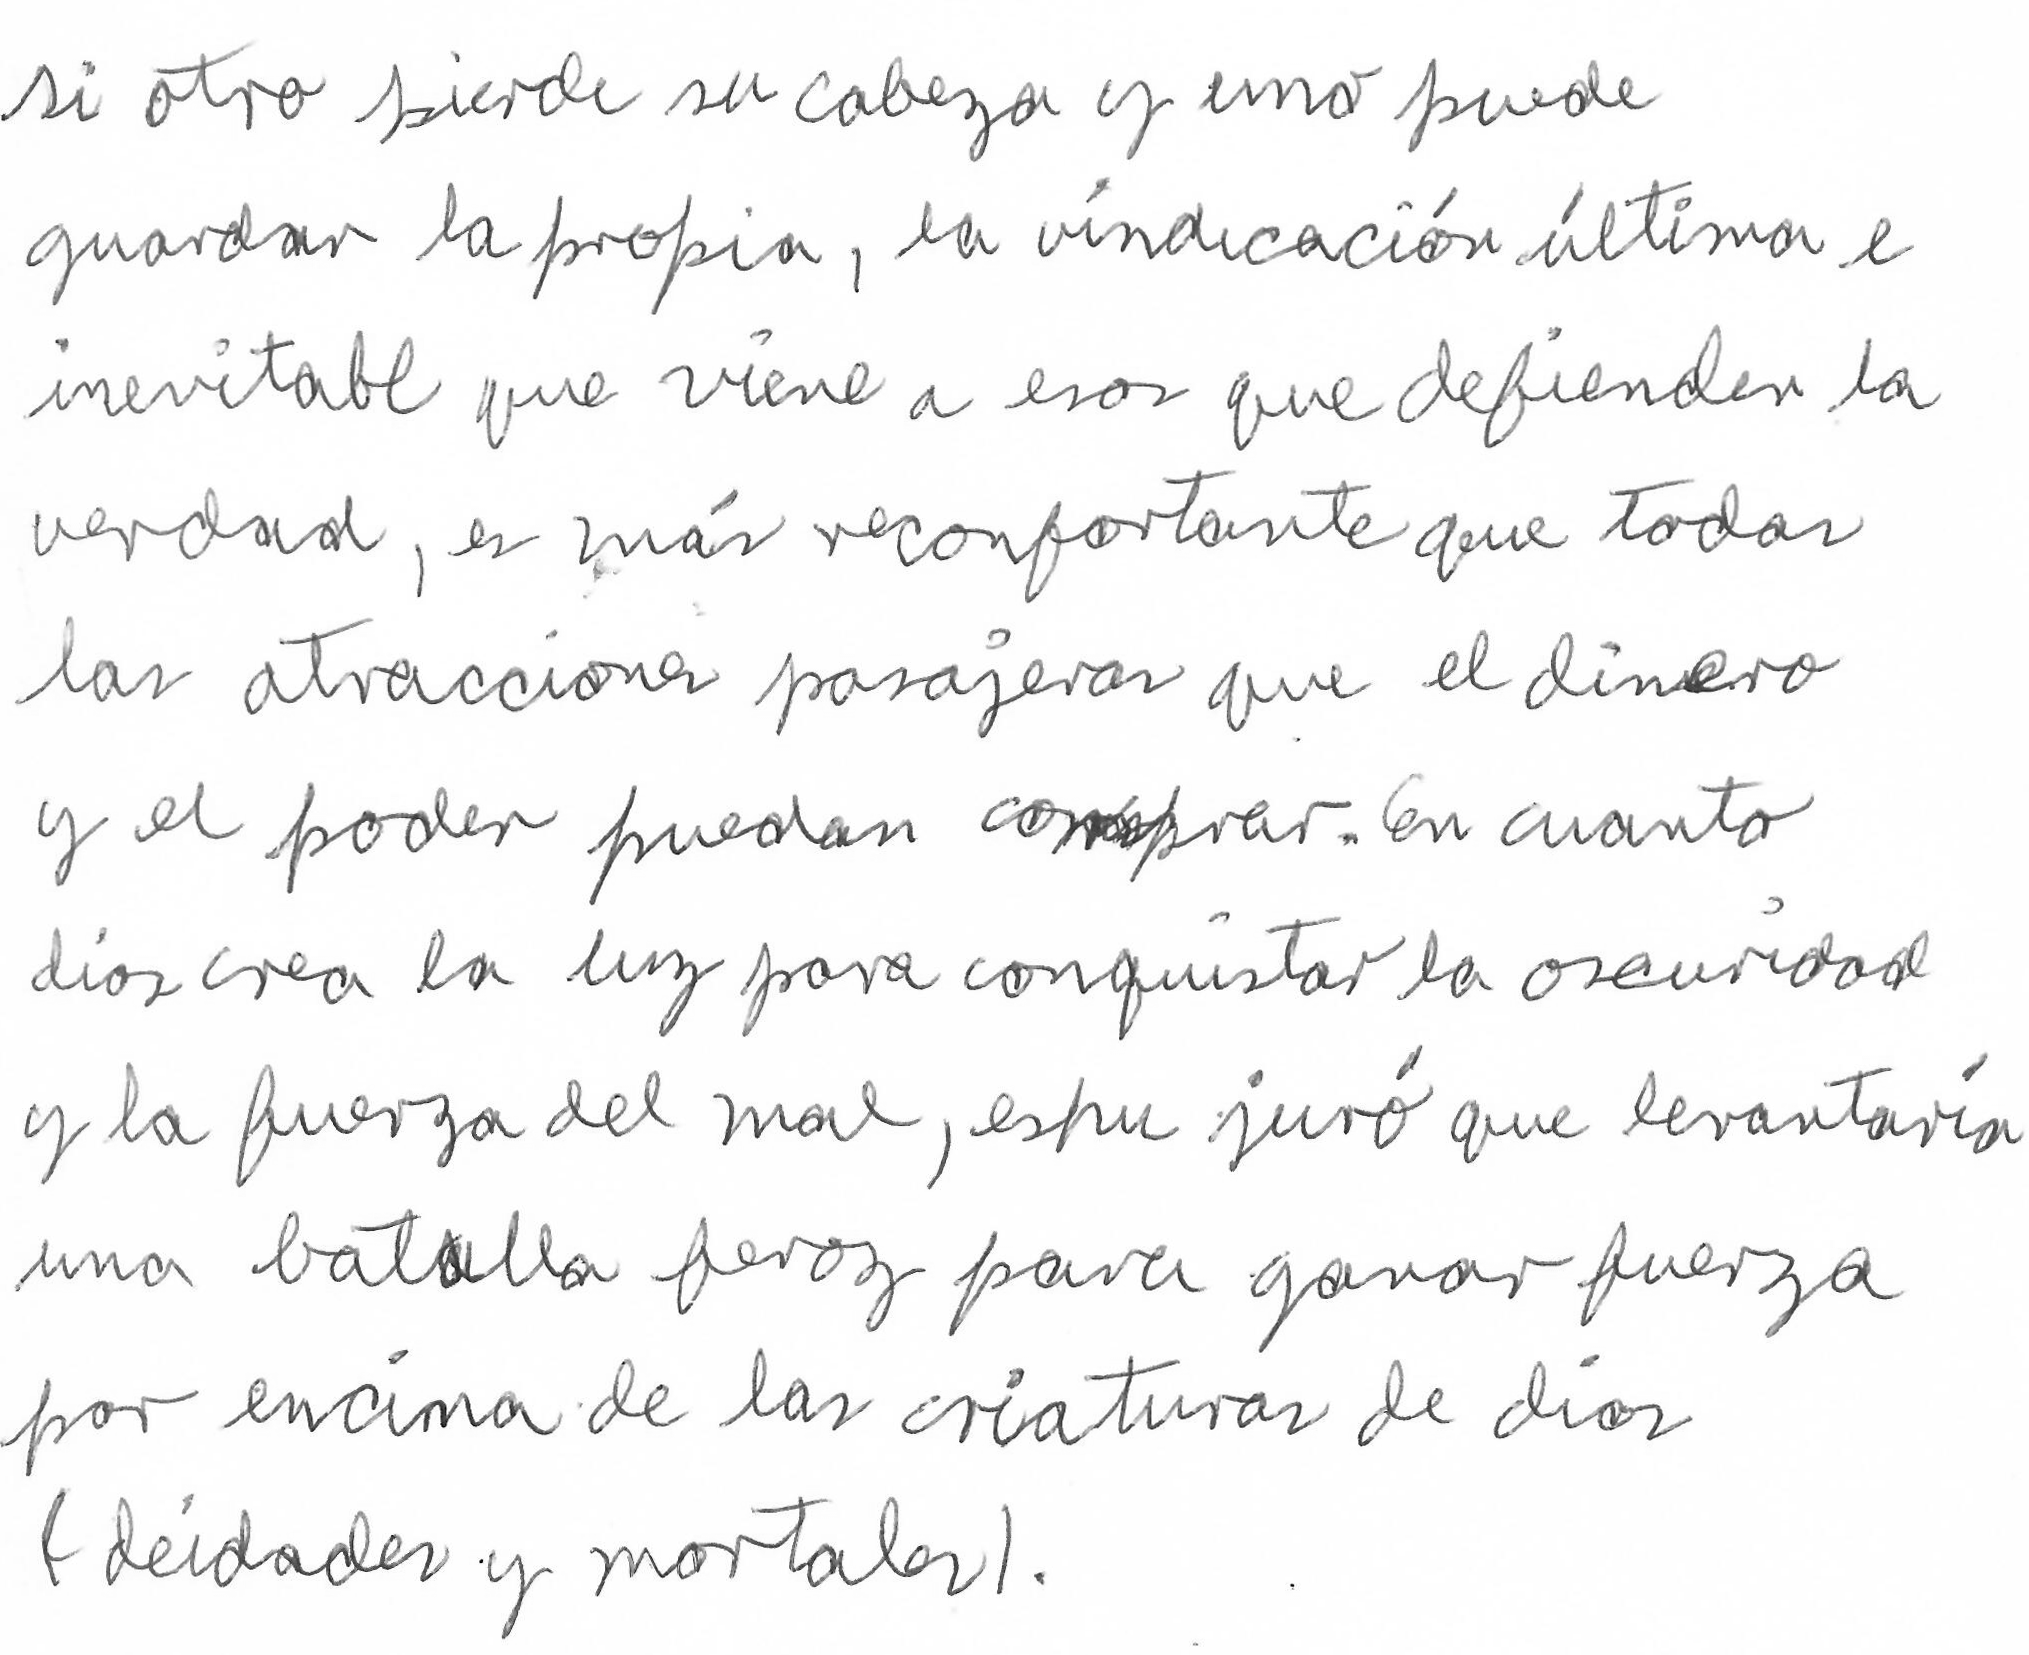 si otro pierde su cabeza y uno puede
guardar la propia, la vindicación última e
inevitabl que viene a esos que defienden la
verdad, es más reconfortante que todas
las atracciones pasajeras que el dinero
y el poder puedan comprar. En cuanto
dios crea la luz para conquistar la oscuridad
y la fuerza del mal, espu juró que levantaría
una batalla feroz para ganar fuerza
por encima de las criaturas de dios
(deidades y mortales).